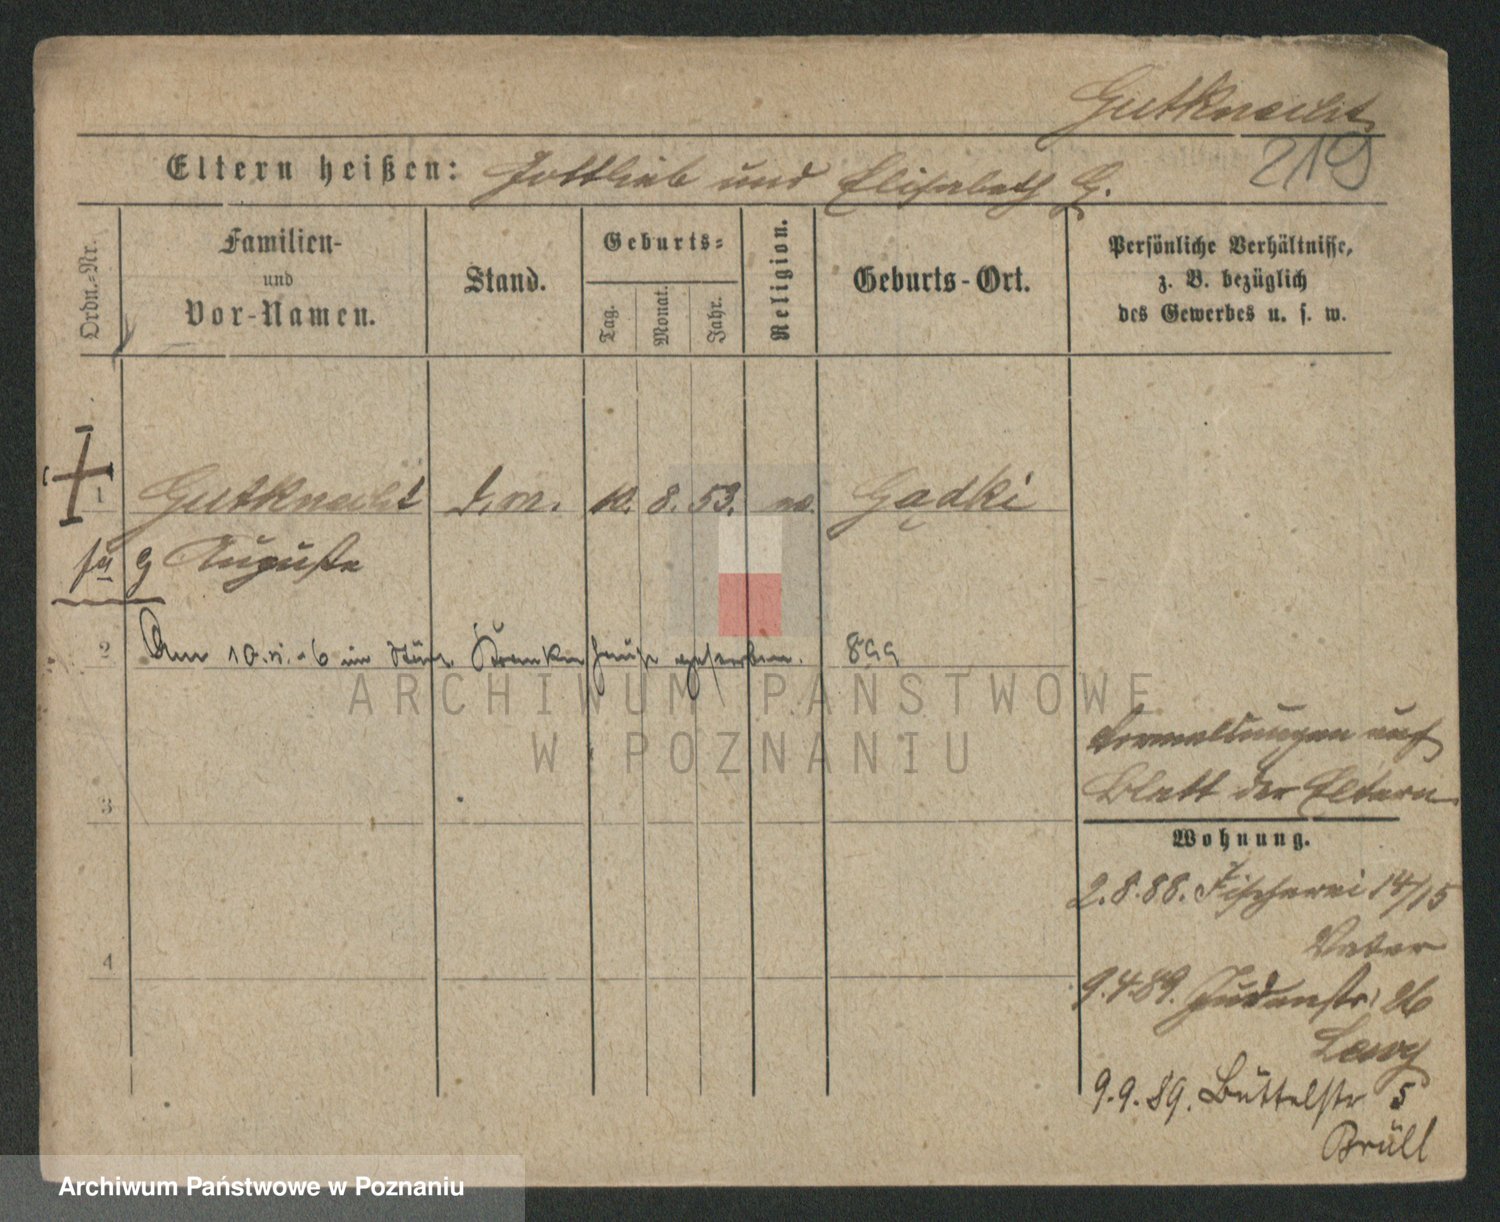 Gutknecht
219
Eltern heißen: Gottlieb und Elisabeth G.
Ordn.-Nr.
Familien-
und
Vor-Namen.
Stand.
Geburts-
Tag.
Monat.
Jahr.
Religion.
Geburts-Ort.
Persönliche Verhältnisse,
z. B. bezüglich
des Gewerbes u. s. w.
1 Gutknecht 10. 8. 53. Gądki
Auguste
2 Am 10. im Krankenhause gestorben. 899
ARCHIWUM PAŃSTWOWE
W POZNANIU
auf
Blatt der Eltern
3
Wohnung.
2.8.88. Fischerei 14/15
Vater
4
9.4.89. Judenstr. 26
Levy
9.9.89. Büttelstr 5
Brüll
Archiwum Państwowe w Poznaniu